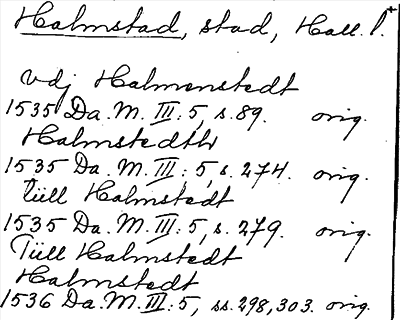 Halmstad, stad, Hall. l.
vdj Halmenstedt
1535 Da. M. III: 5, s. 89. orig.
Halmstedth
1535 Da. M. III: 5, s. 274. orig.
tüll Halmstedt
1535 Da. M. III: 5, s. 279. orig.
Tüll Halmstedt
Halmstedt
1536 Da. M. III: 5, ss. 298, 303. orig.